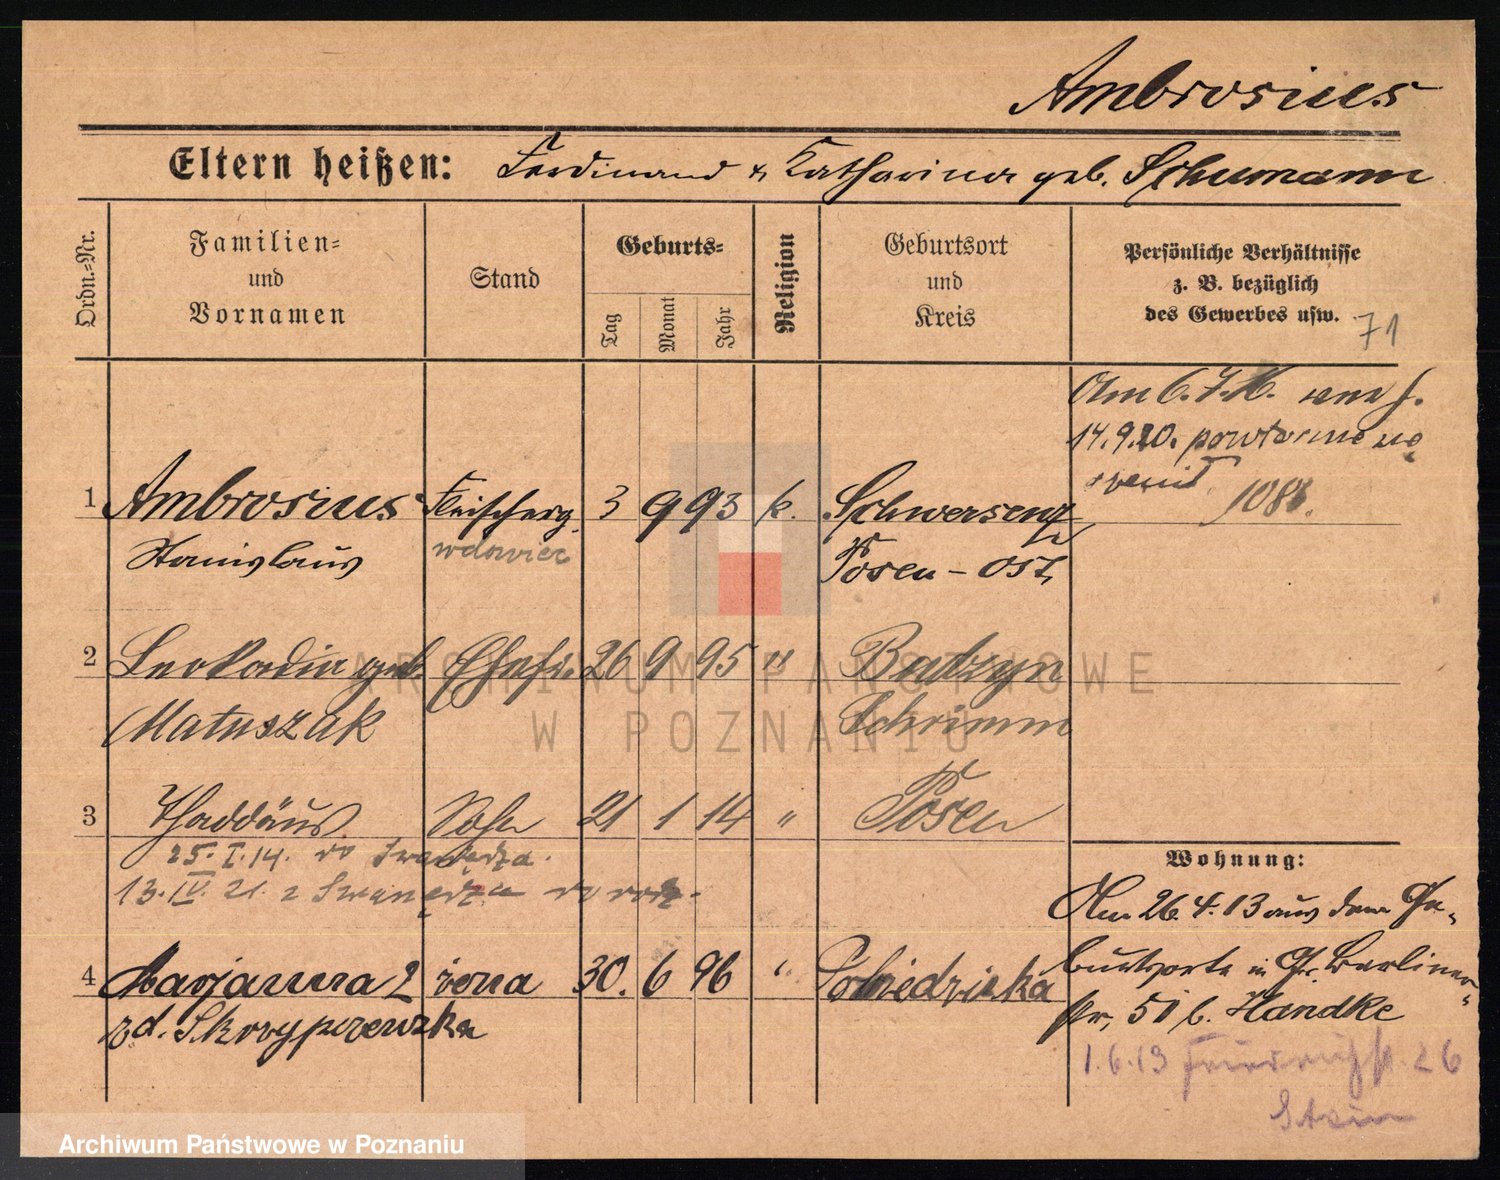 Ambrosius
Eltern heißen: Ferdinand & Katharina geb. Schumann
Ordn.=Nr.
Familien=
und
Vornamen
Stand
Geburts=
Tag
Monat
Jahr
Religion
Geburtsort
und
Kreis
Persönliche Verhältnisse
z. B. bezüglich
des Gewerbes usw.
71
Am 6.7.16.
14.9.20. powtornie
1 Ambrosius Fleischerg. 3 9 93 k. Schwersenz
1086.
Stanislaus wdowiec Posen-Ost
2 Leokadia geb. Ehefr. 26 9 95 " Babzyn
Matuszak Schrimm
3 Thaddäus Sohn 21 1 14 " Posen
25.I.14. do Swarzędza.
13.IV.21. z Swarzędza
4 Marjanna 2 żona 30. 6 96 "
zd.
Wohnung:
Am 26.4.13 aus dem Ge-
burtsorte in Gr. Berliner-
str. 51 b. Handke
1.6.13 Friedrichstr. 26
Stein
ARCHIWUM PAŃSTWOWE
W POZNANIU
Archiwum Państwowe w Poznaniu